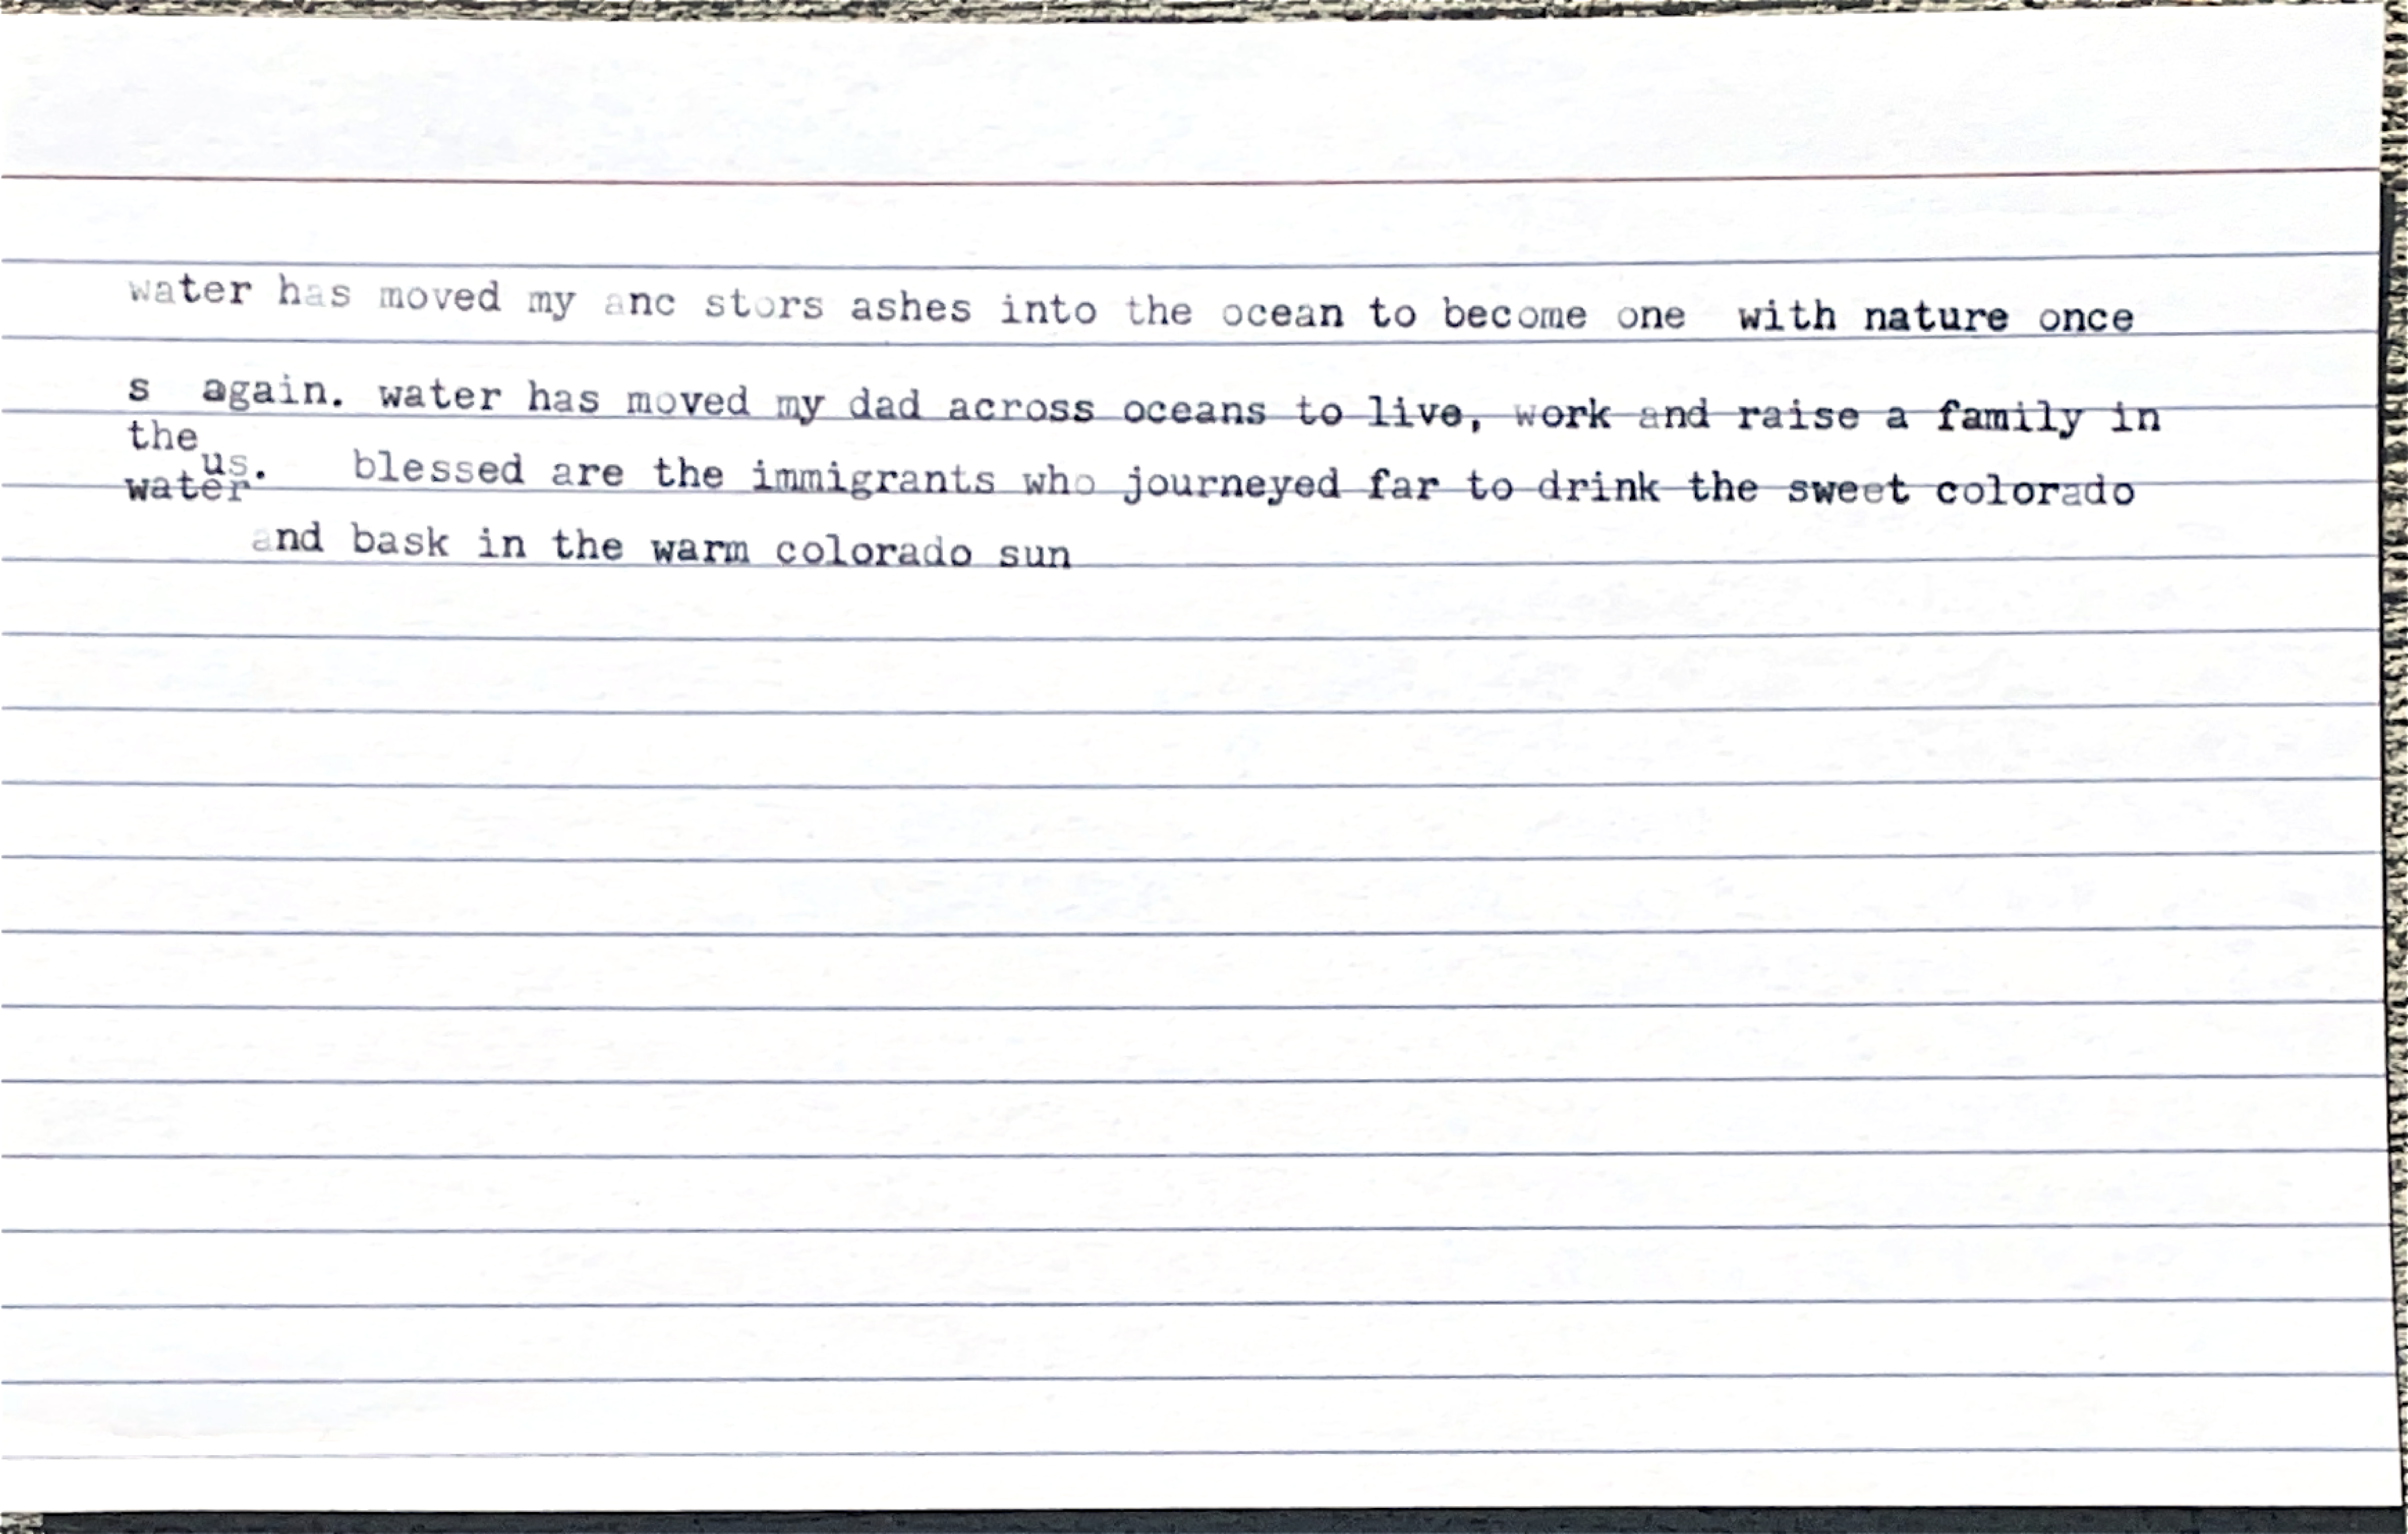 water has moved my anc stors ashes into the ocean to become one  with nature once
s  again. water has moved my dad across oceans to live, work and raise a family in
the
us.   blessed are the immigrants who journeyed far to drink the sweet colorado
water
and bask in the warm colorado sun